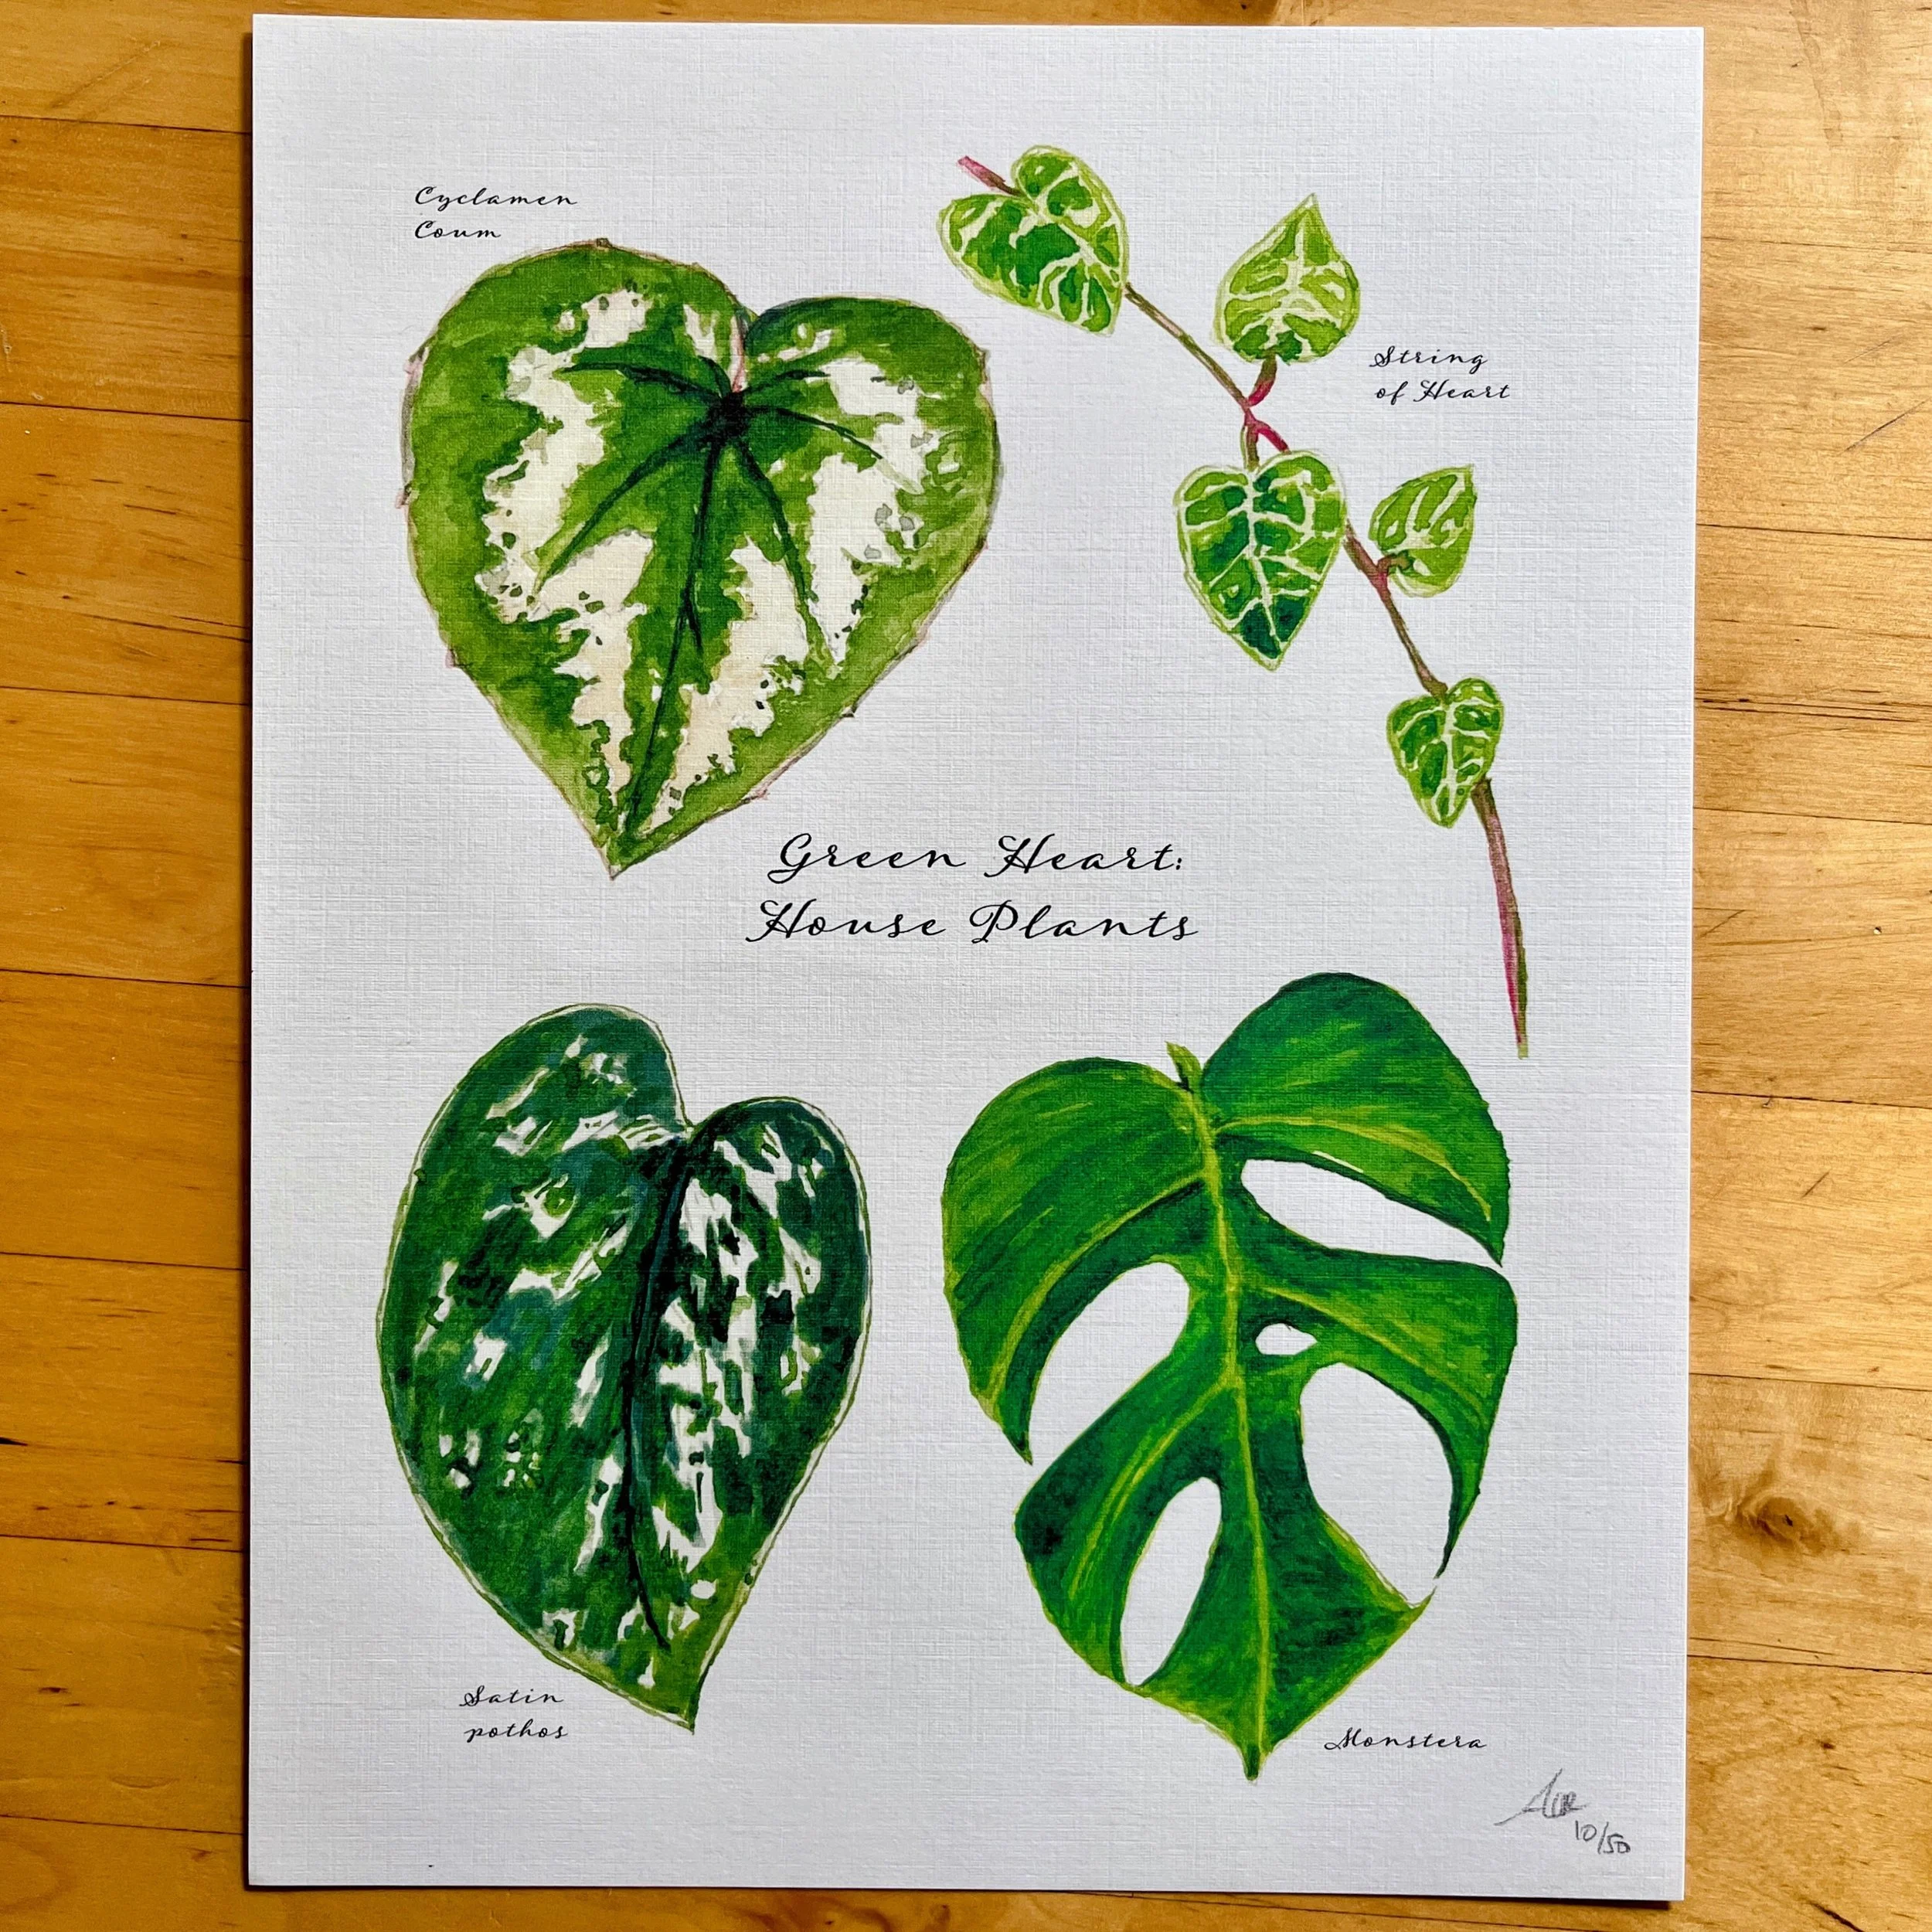 Cyclamen
Coum
String
of Heart
Green Heart:
House Plants
Satin
pothos
Monstera
10/50